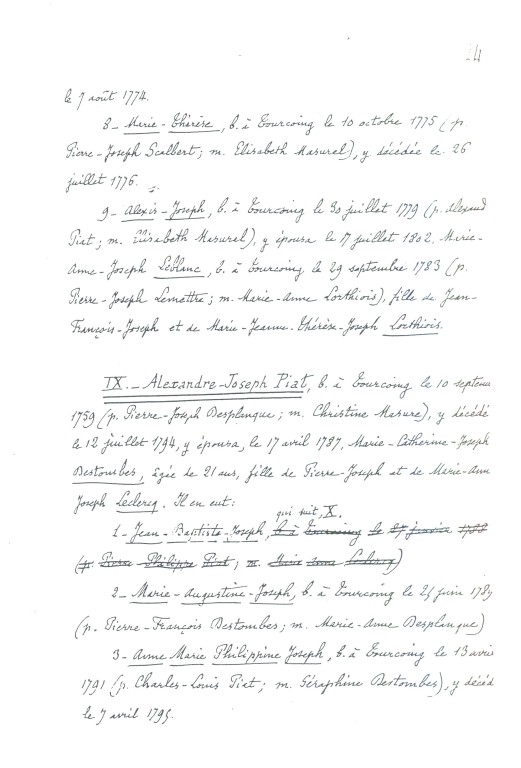 24
le 7 août 1774.
8_ Marie-Thérèse, b. à Tourcoing le 10 octobre 1775 (p.
Pierre-Joseph Scalbert; m. Elisabeth Masurel), y décédée le 26
juillet 1776.
9_ Alexis-Joseph, b. à Tourcoing le 30 juillet 1779 (p. Alexand
Piat; m. Elisabeth Masurel), y épousa le 17 juillet 1802, Marie-
Anne-Joseph Leblanc, b. à Tourcoing le 29 septembre 1783 (p.
Pierre-Joseph Lemettre; m. Marie-Anne Lorthiois), fille de Jean-
François-Joseph et de Marie-Jeanne-Thérèse-Joseph Lorthiois.
IX._ Alexandre-Joseph Piat, b. à Tourcoing le 10 septem
1759 (p. Pierre-Joseph Desplanque; m. Christine Masure), y décédé
le 12 juillet 1794, y épousa, le 17 avril 1787, Marie-Catherine-Joseph
Destombes, âgée de 21 ans, fille de Pierre-Joseph et de Marie-Ann
Joseph Leclercq. Il en eut:
qui suit, X.
1_ Jean-Baptiste-Joseph, b. à Tourcoing le 27 janvier 1788
(p. Pierre-Philippe Piat; m. Marie Anne Leclercq)
2_ Marie-Augustine-Joseph, b. à Tourcoing le 25 juin 1789
(p. Pierre-François Destombes; m. Marie-Anne Desplanque)
3_ Anne Marie Philippine Joseph, b. à Tourcoing le 13 avri
1791 (p. Charles-Louis Piat; m. Séraphine Destombes), y décéd
le 7 avril 1795.